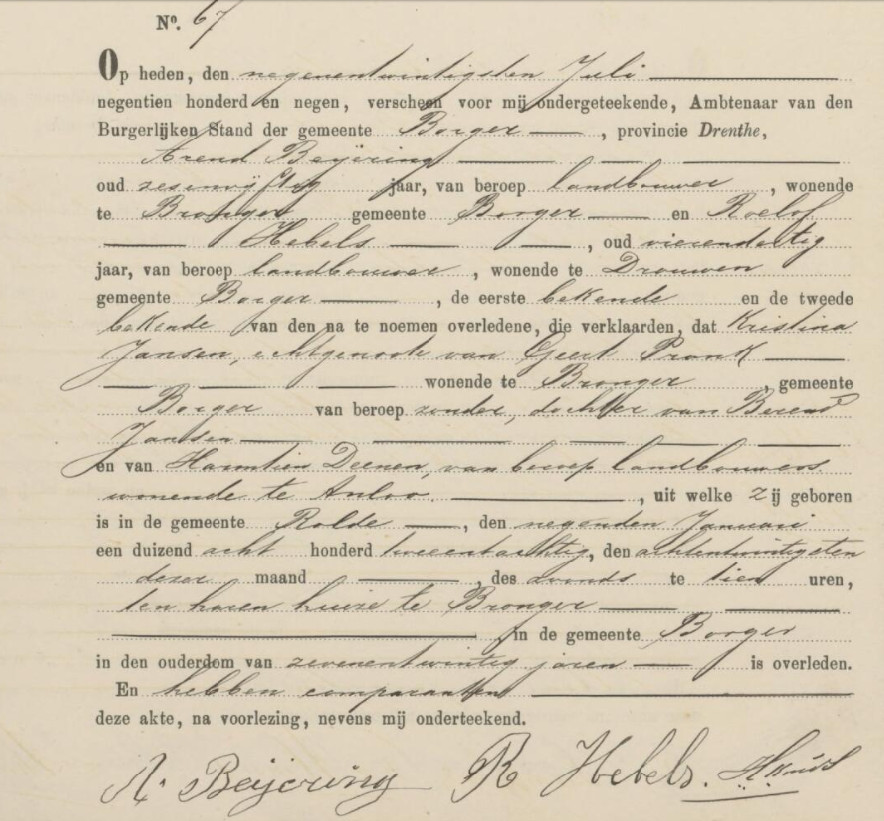 No. 67
Op heden, den negenentwintigsten Juli
negentien honderd en negen, verscheen voor mij ondergeteekende, Ambtenaar van den
Burgerlijken Stand der gemeente Borger, provincie Drenthe,
Arend Beijering
oud zesenvijftig jaar, van beroep landbouwer, wonende
te Bronger gemeente Borger en Roelof
Hebels, oud vierendertig
jaar, van beroep landbouwer, wonende te Drouwen
gemeente Borger, de eerste bekende en de tweede
bekende van den na te noemen overledene, die verklaarden, dat Kristina
Jansen, echtgenoote van Geert Pronk
wonende te Bronger, gemeente
Borger van beroep zonder, dochter van Berend
Jansen
en van Harmtien Deenen, van beroep landbouwers
wonende te Anloo, uit welke zij geboren
is in de gemeente Rolde, den negenden Januari
een duizend acht honderd tweeentachtig, den achtentwintigsten
dezer maand, des avonds te tien uren,
ten haren huize te Bronger
in de gemeente Borger
in den ouderdom van zevenentwintig jaren is overleden.
En hebben comparanten
deze akte, na voorlezing, nevens mij onderteekend.
A. Beijering R Hebels.